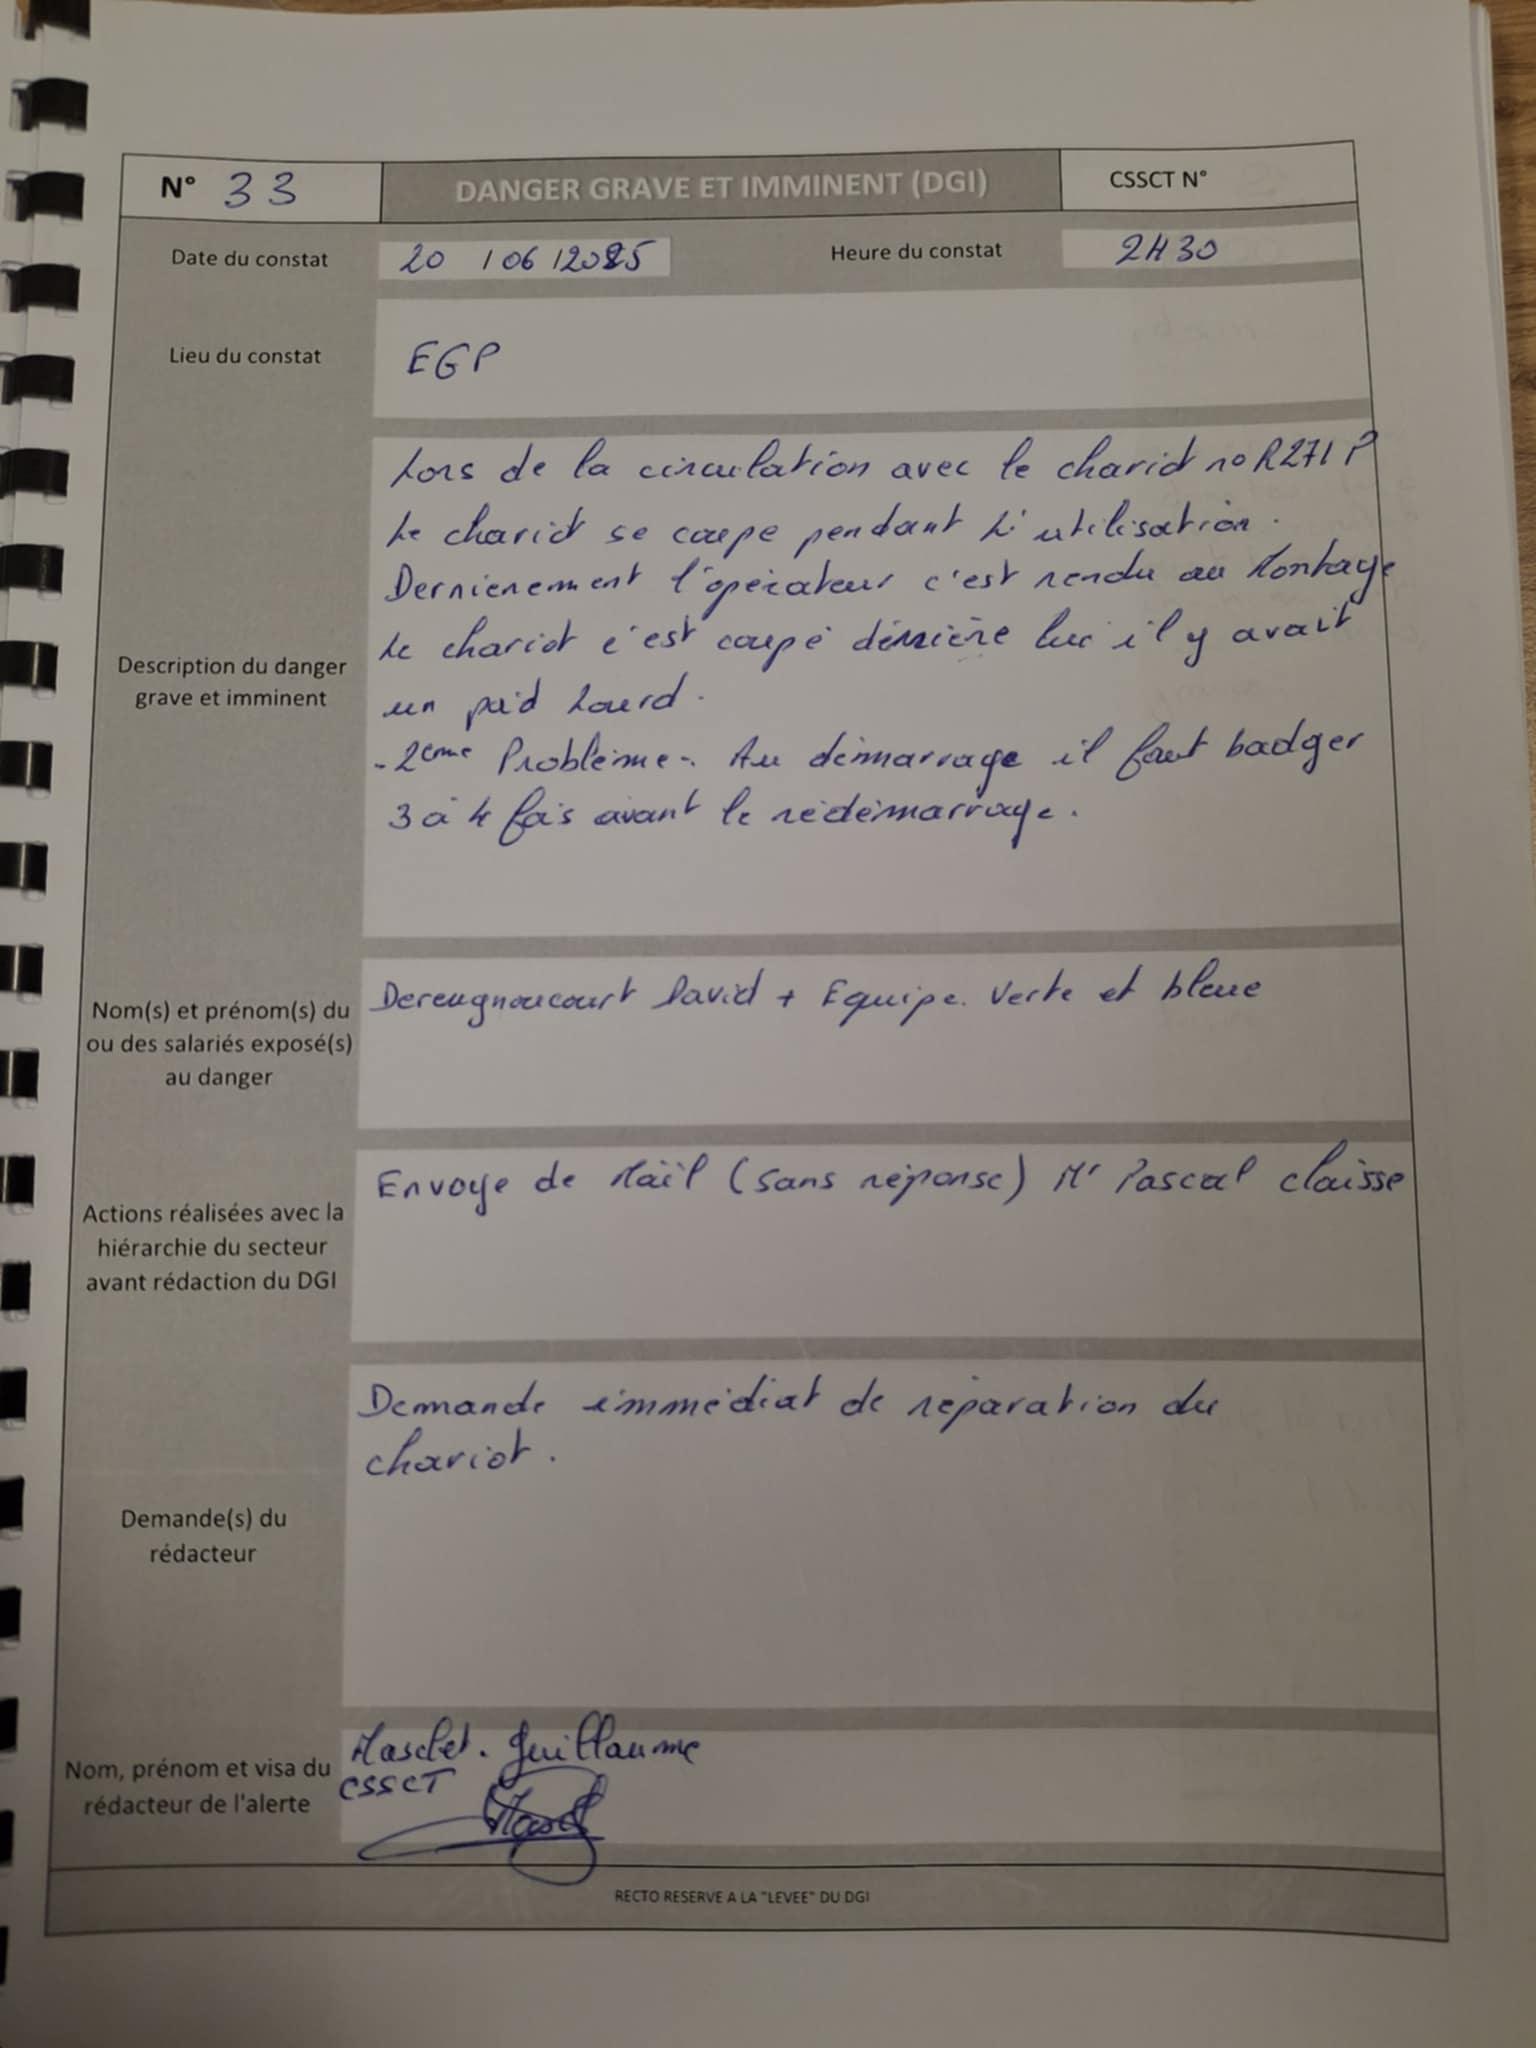 N° 33
DANGER GRAVE ET IMMINENT (DGI)
CSSCT N°
Date du constat
20 / 06 / 2025
Heure du constat
2H30
Lieu du constat
EGP
Description du danger
grave et imminent
Lors de la circulation avec le chariot no R271 P
Le chariot se coupe pendant L'utilisation.
Dernierement l'opérateur c'est rendu au Montage
Le chariot c'est coupé dérrière lui il y avait
un poid Lourd.
- 2ème Problème - Au démarrage il faut badger
3 à 4 fois avant le redémarrage.
Nom(s) et prénom(s) du
ou des salariés exposé(s)
au danger
Dereugnaucourt David + Equipe Verte et bleue
Actions réalisées avec la
hiérarchie du secteur
avant rédaction du DGI
Envoye de Mail (sans réponse) Mr Pascal Claisse
Demande(s) du
rédacteur
Demande immédiat de réparation du
chariot.
Nom, prénom et visa du
rédacteur de l'alerte
Masclet. Guillaume
CSSCT
RECTO RESERVE A LA "LEVEE" DU DGI